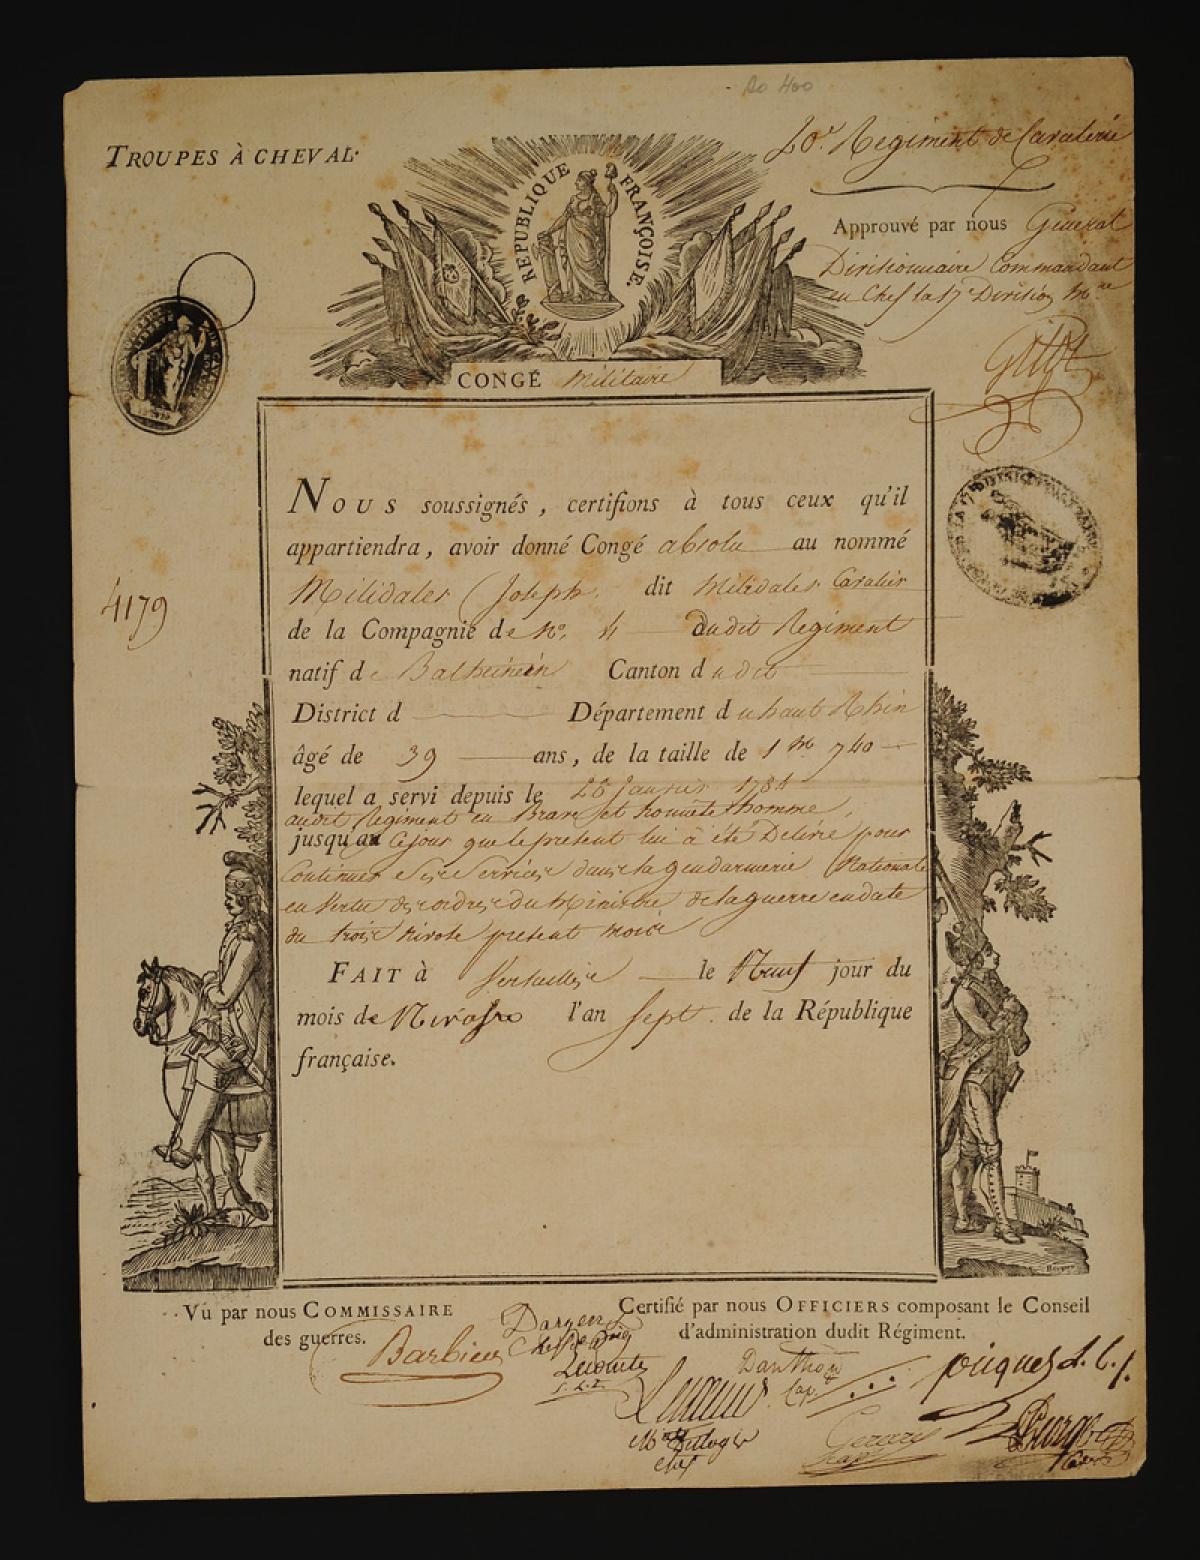 Ro 400
TROUPES À CHEVAL.
20e Regiment de Cavalerie
REPUBLIQUE FRANÇOISE.
Approuvé par nous General
Divisionnaire Commandant
en Chef la 17e Division Mre
CONGÉ Militaire
NOUS soussignés, certifions à tous ceux qu'il
appartiendra, avoir donné Congé absolu au nommé
Milidales (Joseph. dit Milidales Cavalier
4179
de la Compagnie de No. 4 dudit Regiment
natif de Canton dudit
District d Département du haut Rhin
âgé de 39 ans, de la taille de 1 m 740
lequel a servi depuis le 26 Janvier 1784
audit Regiment en Brave et honnete homme,
jusqu'au Cejour que le présent lui à été Délivré pour
Continuer Ses Services dans la gendarmerie Nationale
en Vertu des ordres du Ministre de la guerre en date
du trois nivose present mois
FAIT à Versailles le Neuf jour du
mois de Nivose l'an Sept. de la République
française.
Vu par nous COMMISSAIRE
des guerres.
Certifié par nous OFFICIERS composant le Conseil
d'administration dudit Régiment.
Barbier
Lecomte
S. L.t
Danthon
Cap.
piques S. L. t.
Gerard
chef